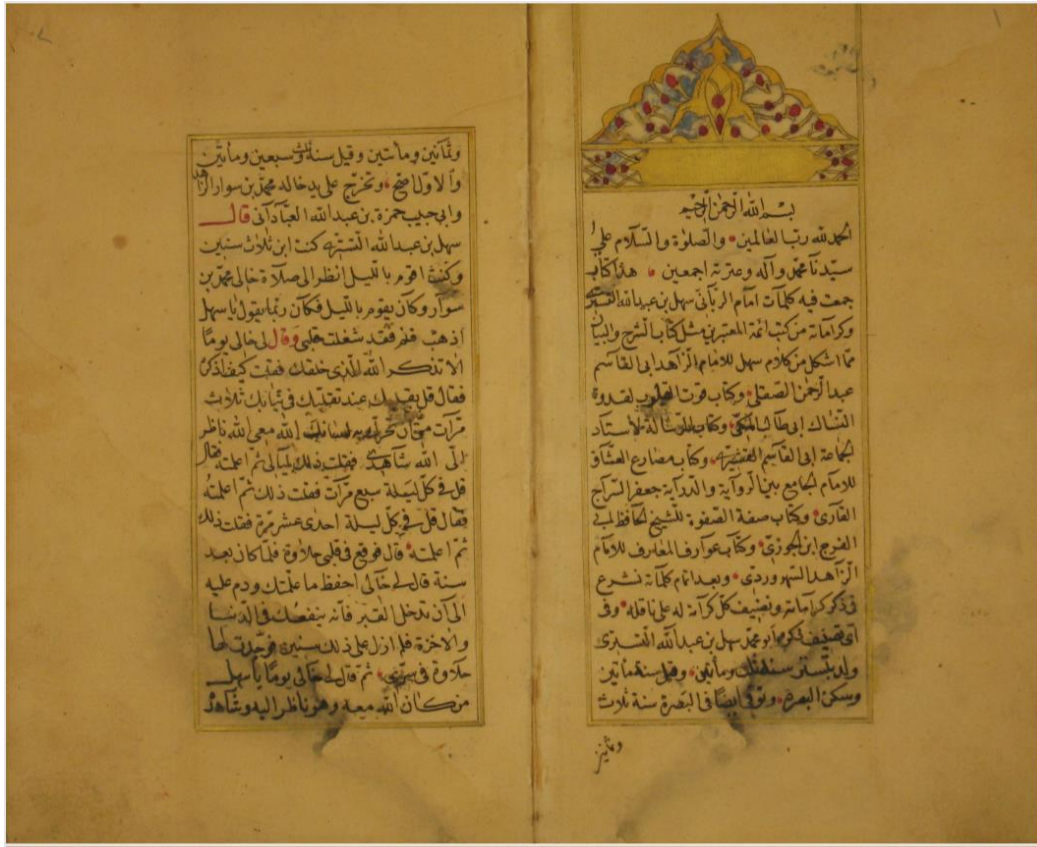 بسم الله الرحمن الرحيم
الحمد لله رب العالمين والصلوة والسلام على
سيدنا محمد وآله وعترته اجمعين هذا كتاب
جمعت فيه كلمات امام الرباني سهل بن عبد الله التستري
وكراماته من كتب ائمة المعتبرين مثل كتاب الشرح والبيان
مما اشكل من كلام سهل للامام الزاهد ابى القاسم
عبد الرحمن الصقلى وكتاب قوت القلوب لقدوة
النساك ابى طالب المكى وكتاب الرسالة لاستاد
الجماعة ابى القاسم القشيرى وكتاب مصارع العشاق
للامام الجامع بين الرواية والدراية جعفر السراج
القارى وكتاب صفة الصفوة للشيخ الحافظ ابى
الفرج ابن الجوزى وكتاب عوارف المعارف للامام
الزاهد السهروردى وبعد اتمام كلماته نشرع
فى ذكر كراماته ونضيف كل كرامة له على ناقله وفى
اى تصنيف ذكره ابو محمد سهل بن عبد الله التسترى
ولد بتستر سنة ثلث ومأتين وقيل سنة مأتين
وسكن البصرة وتوفى ايضا فى البصرة سنة ثلاث
وثمانين
وثمانين ومأتين وقيل سنة ثلث وسبعين ومأتين
والاول اصح وتخرج على يد خاله محمد بن سوار الزاهد
وابى حبيب حمزة بن عبد الله العبادانى قال
سهل بن عبد الله التسترى كنت ابن ثلاث سنين
وكنت اقوم بالليل انظر الى صلاة خالى محمد بن
سوار وكان يقوم بالليل فكان ربما يقول يا سهل
اذهب فنم فقد شغلت قلبى وقال لى خالى يومًا
الا تذكر الله الذى خلقك فقلت كيف اذكره
فقال قل بقلبك عند تقلبك فى ثيابك ثلاث
مرات من غير ان تحرك به لسانك الله معى الله ناظر
الىّ الله شاهدى فقلت ذلك ليالى ثم اعلمته فقال
قل فى كل ليلة سبع مرات فقلت ذلك ثم اعلمته
فقال قل فى كل ليلة احدى عشر مرة فقلت ذلك
ثم اعلمته قال فوقع فى قلبى حلاوة فلما كان بعد
سنة قال لى خالى احفظ ما علمتك ودم عليه
الى ان تدخل القبر فانه ينفعك فى الدنيا
والاخرة فلم ازل على ذلك سنين فوجدت لها
حلاوة فى سرى ثم قال لى خالى يومًا يا سهل
من كان الله معه وهو ناظر اليه وشاهد